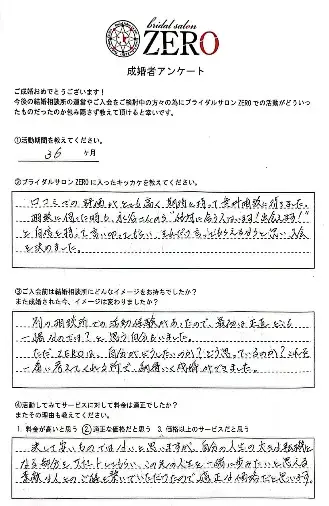 bridal salon
ZERO
成婚者アンケート
ご成婚おめでとうございます！
今後の結婚相談所の運営やご入会をご検討中の方々の為にブライダルサロンZEROでの活動がどういっ
たものだったのか包み隠さず教えて頂けると幸いです。
①活動期間を教えてください。
36 ヶ月
②ブライダルサロンZEROに入ったキッカケを教えてください。
口コミでの評価がとても高く、期待を持って無料相談に行きました。
相談に伺った時も、
と自信を持って言い切ってもらい、 入会
を決めました。
③ご入会前は結婚相談所にどんなイメージをお持ちでしたか？
また成婚された今、イメージは変わりましたか？
別の相談所での活動経験があったので、最初は正直どこも
一緒なのでは？と思う自分もいました。
ただZEROは、自分がどうしたいのか？どう思っているのか？これを
一緒に考えてくれる所で、納得いく成婚ができました。
④活動してみてサービスに対して料金は適正でしたか？
またその理由も教えてください。
1. 料金が高いと思う ②適正な価格だと思う 3. 価格以上のサービスだと思う
決して安いものではないと思いますが、自分の人生の大きな転機と
なる部分をサポートしてもらい、この先の人生を一緒に歩みたいと思える
素敵な人とのご縁を繋いでいただけたので、適正な価格だと思います。